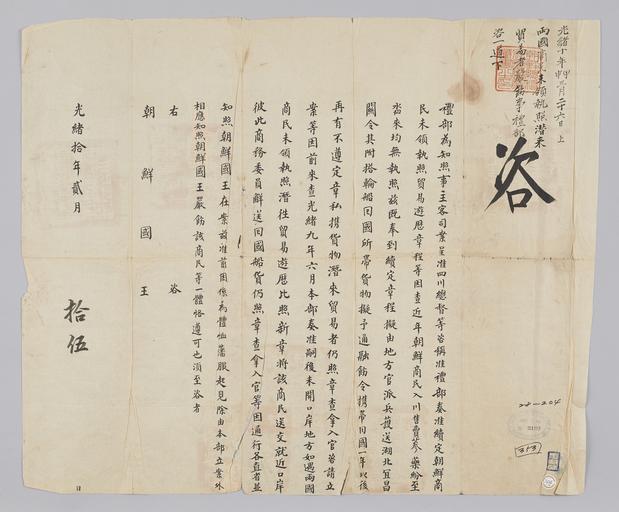 光緒十年甲申三月二十六日 上
兩國商民未領執照潛來
貿易者 飭事禮部
咨一道下
咨
禮部為知照事主客司案呈准四川總督等咨稱准禮部奏准續定朝鮮商
民未領執照貿易遊歷章程等因查近年朝鮮商民入川售賣蔘藥紛至
沓來均無執照茲既奉到續定章程擬由地方官派兵護送湖北宜昌
關令其附搭輪船回國所帶貨物擬予通融飭令攜帶回國一年以後
再有不遵定章私攜貨物潛來貿易者仍照章查拿入官咨請立
案等因前來查光緒九年六月本部奏准嗣後未開口岸地方如遇兩國
商民未領執照潛往貿易遊歷比照新章將該商民送交就近口岸
彼此商務委員解送回國船貨仍照章查拿入官等因通行各直省並
知照朝鮮國王在案茲准前因係為體恤藩服起見除由本部立案外
相應知照朝鮮國王嚴飭該商民等一體恪遵可也須至咨者
右 咨
朝 鮮 國 王
光緒拾年貳月
拾伍
日
353